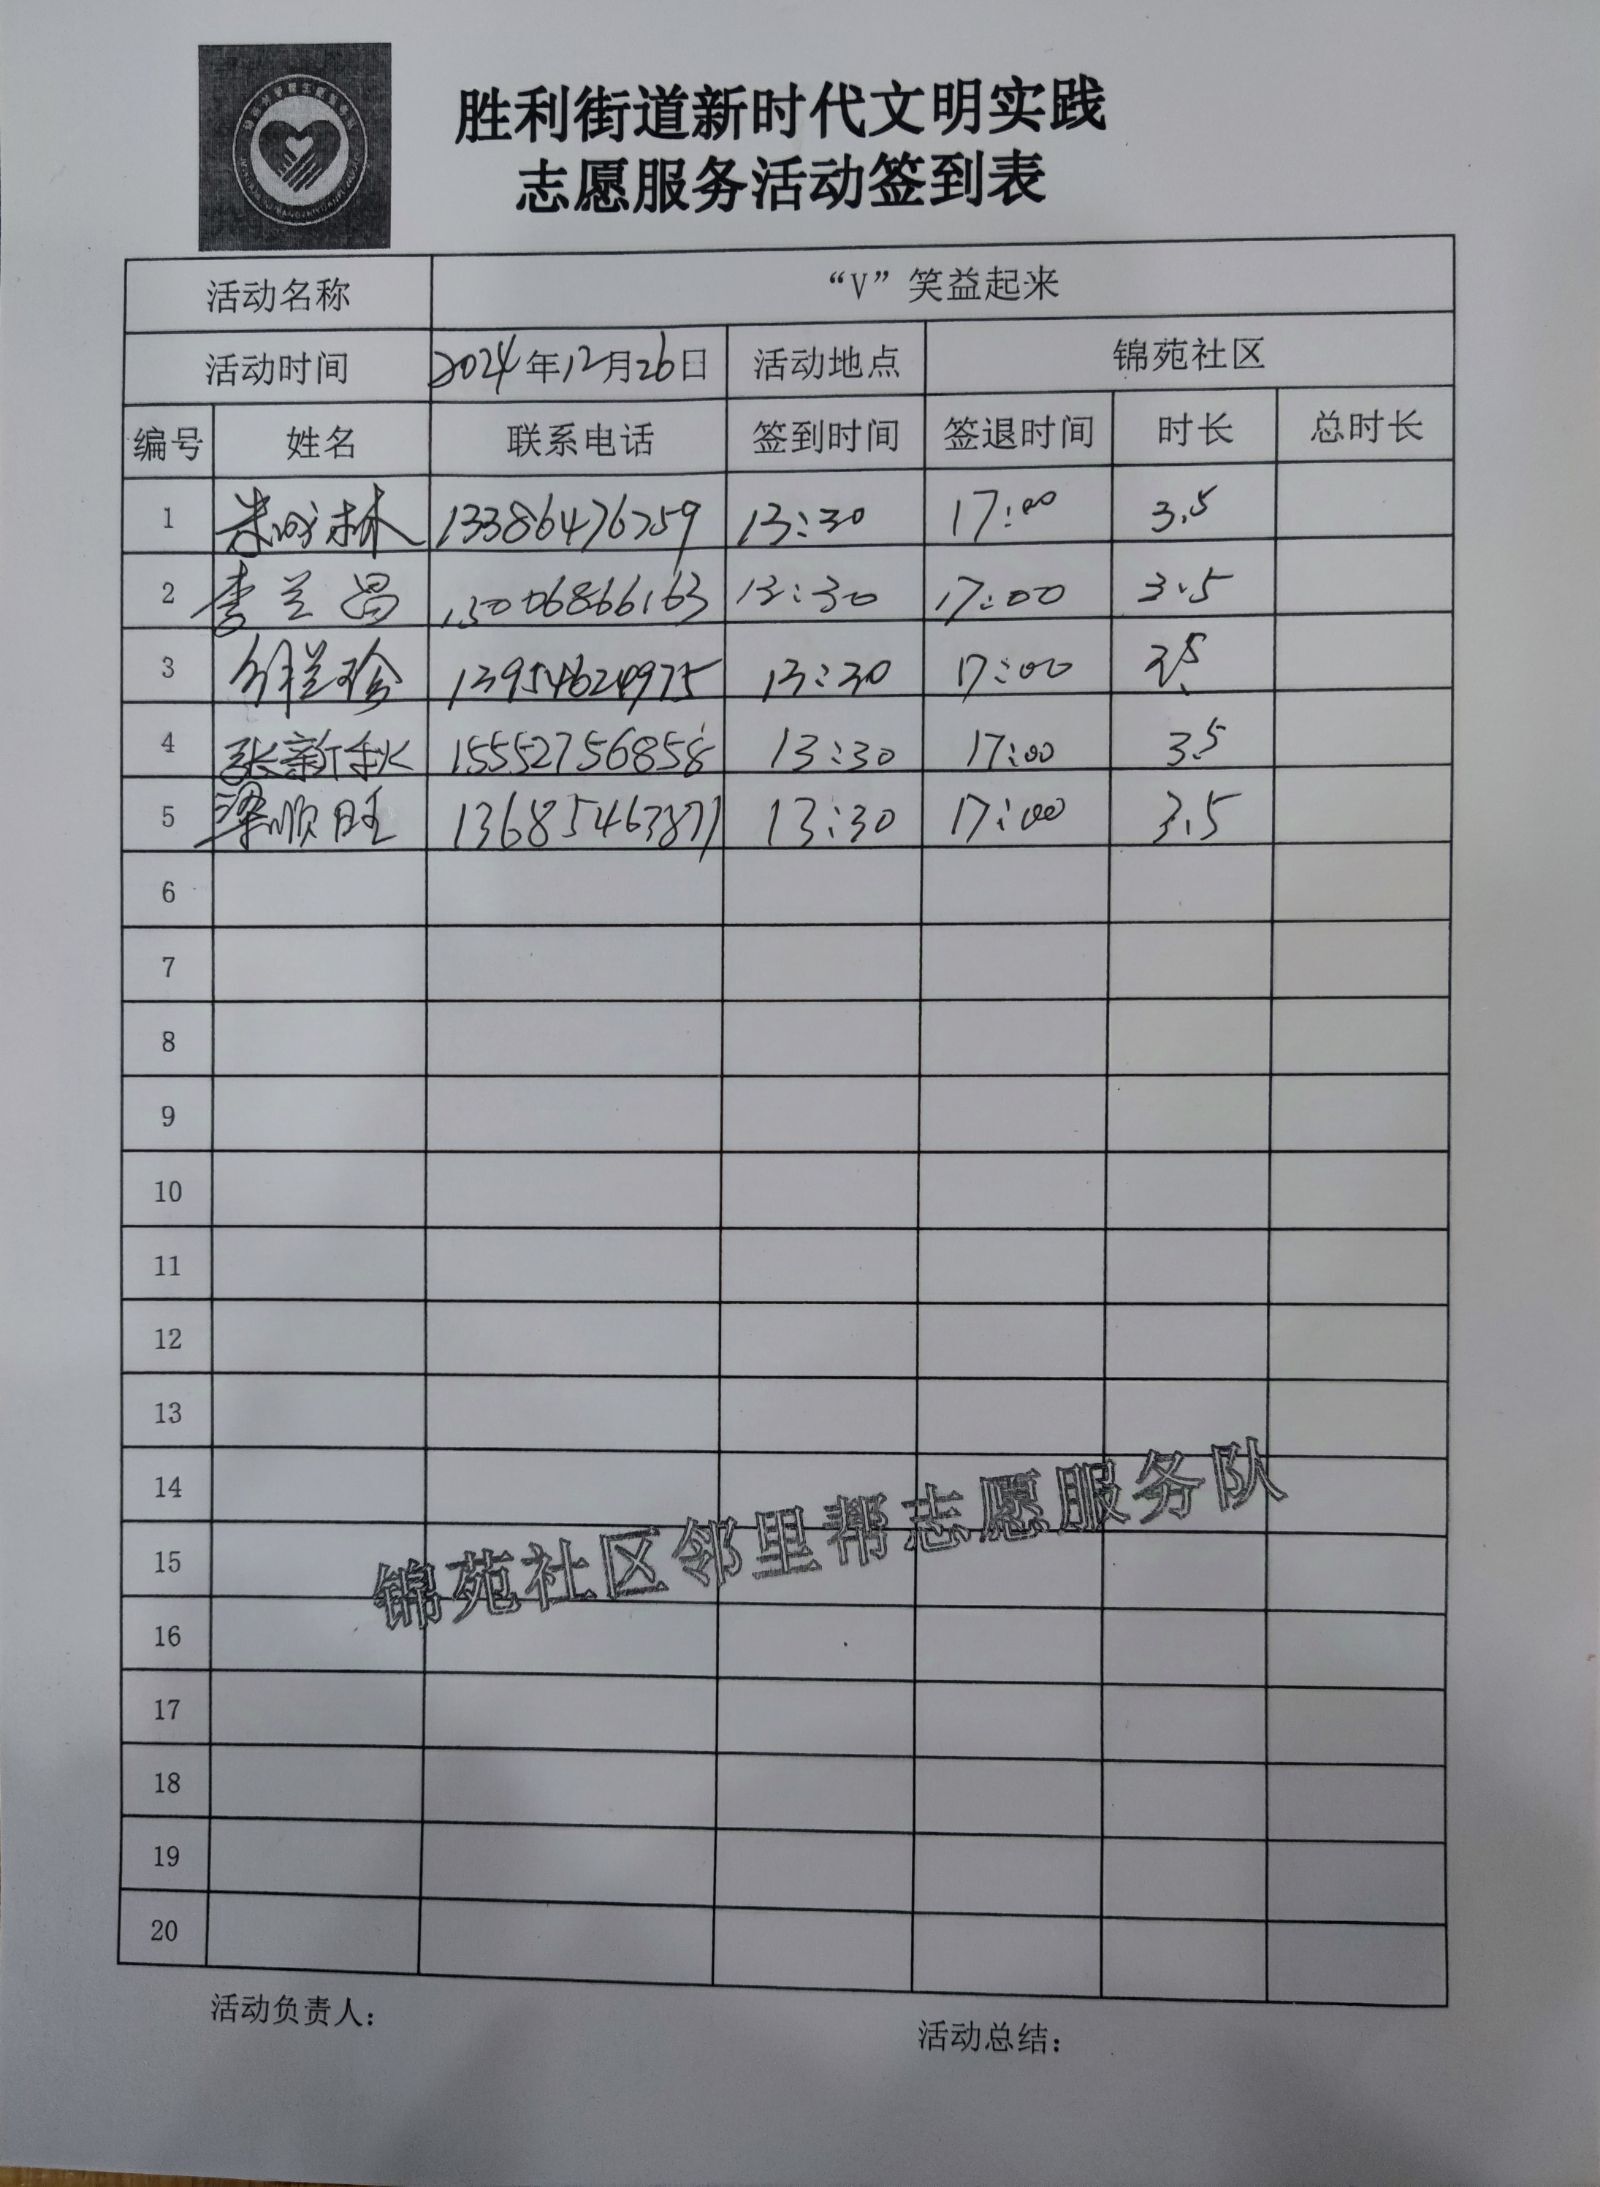 胜利街道新时代文明实践
志愿服务活动签到表
活动名称 “V”笑益起来
活动时间 2024年12月26日 活动地点 锦苑社区
编号 姓名 联系电话 签到时间 签退时间 时长 总时长
1 13386476759 13:30 17:00 3.5
2 李兰昌 15006866163 13:30 17:00 3.5
3 兰珍 13954624975 13:30 17:00 3.5
4 张新秋 15552756858 13:30 17:00 3.5
5 梁顺旺 13685463877 13:30 17:00 3.5
6
7
8
9
10
11
12
13
14
15
16
17
18
19
20
锦苑社区邻里帮志愿服务队
活动负责人：
活动总结：